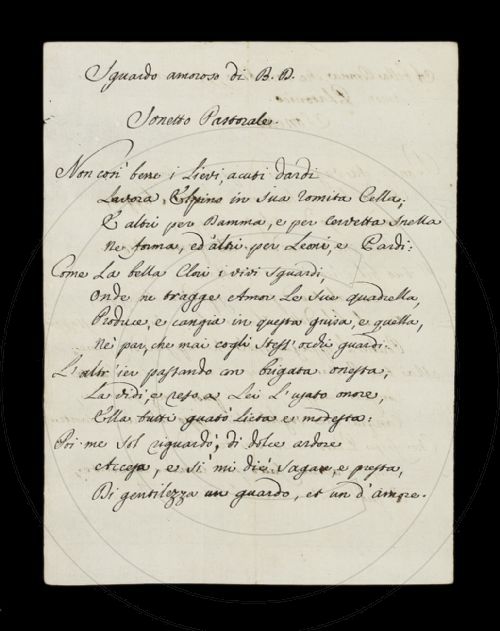 Sguardo amoroso di B. D.
Sonetto Pastorale.
Non così bene i Lievi, acuti dardi
Lavora Elpino in sua romita Cella;
E altri per Damma, e per Cervetta snella
Ne forma, ed altri per Leoni, e Pardi:
Come La bella Clori i vivi sguardi,
Onde ne tragge Amor Le sue quadrella,
Produce, e cangia in questa guisa, e quella,
Nè par, che mai cogli stess' occhi guardi.
L'altr' ier passando con brigata onesta,
La vidi, e reso a Lei L'usato onore,
Ella tutti guatò Lieta e modesta:
Poi me sol riguardò; di dolce ardore
Accesa, e sì mi diè sagace, e presta,
Di gentilezza un guardo, et un d'amore.